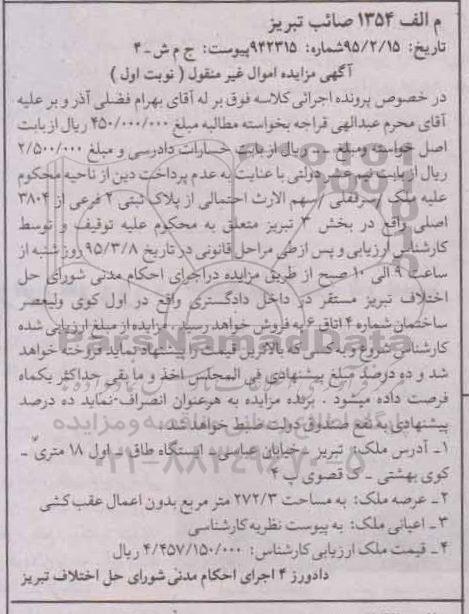 م الف ۱۳۵۴ صائب تبریز
تاریخ: ۹۵/۲/۱۵شماره: ۹۴۲۳۱۵پیوست: ج م ش-۴
آگهی مزایده اموال غیر منقول ( نوبت اول )
در خصوص پرونده اجرائی کلاسه فوق بر له آقای بهرام فضلی آذر و بر علیه
آقای محرم عبدالهی قراجه بخواسته مطالبه مبلغ ۴۵۰/۰۰۰/۰۰۰ ریال از بابت
اصل خواسته ومبلغ ریال از بابت خسارات دادرسی و مبلغ ۲/۵۰۰/۰۰۰
ریال از بابت نیم عشر دولتی با عنایت به عدم پرداخت دین از ناحیه محکوم
علیه ملک /سرقفلی /سهم الارث احتمالی از پلاک ثبتی ۲ فرعی از ۳۸۰۴
اصلی واقع در بخش ۳ تبریز متعلق به محکوم علیه توقیف و توسط
کارشناس ارزیابی و پس از طی مراحل قانونی در تاریخ ۹۵/۳/۸ روز شنبه از
ساعت ۹ الی ۱۰ صبح از طریق مزایده دراجرای احکام مدنی شورای حل
اختلاف تبریز مستقر در داخل دادگستری واقع در اول کوی ولیعصر
ساختمان شماره ۴ اتاق ۶ به فروش خواهد رسید . مزایده از مبلغ ارزیابی شده
کارشناس شروع و به کسی که بالاترین قیمت را پیشنهاد نماید فروخته خواهد
شد و ده درصد مبلغ پیشنهادی فی المجلس اخذ و ما بقی حداکثر یکماه
فرصت داده میشود . برنده مزایده به هرعنوان انصراف نماید ده درصد
پیشنهادی به نفع صندوق دولت ضبط خواهد شد.
۱ـ آدرس ملک: تبریز ـ خیابان عباسی ـ ایستگاه طاق ـ اول ۱۸ متری ـ
کوی بهشتی ـ ک قصوی پ ۴
۲ـ عرصه ملک: به مساحت ۲۷۲/۳ متر مربع بدون اعمال عقب کشی
۳ـ اعیانی ملک: به پیوست نظریه کارشناسی
۴ـ قیمت ملک ارزیابی کارشناس: ۴/۴۵۷/۱۵۰/۰۰۰ ریال
دادورز ۴ اجرای احکام مدنی شورای حل اختلاف تبریز
ParsNamadData
۰۲۱-۸۸۳۴۹۶۷۰-۵